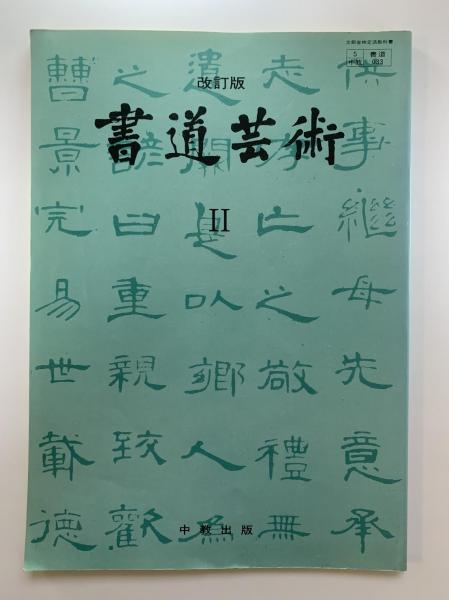 文部省検定済教科書
5 書道
中教 083
改訂版
書道芸術
II
供事繼母先意承
志存亡之敬禮無
遺闕是以鄉人為
之諺曰重親致歡
曹景完易世載德
中教出版